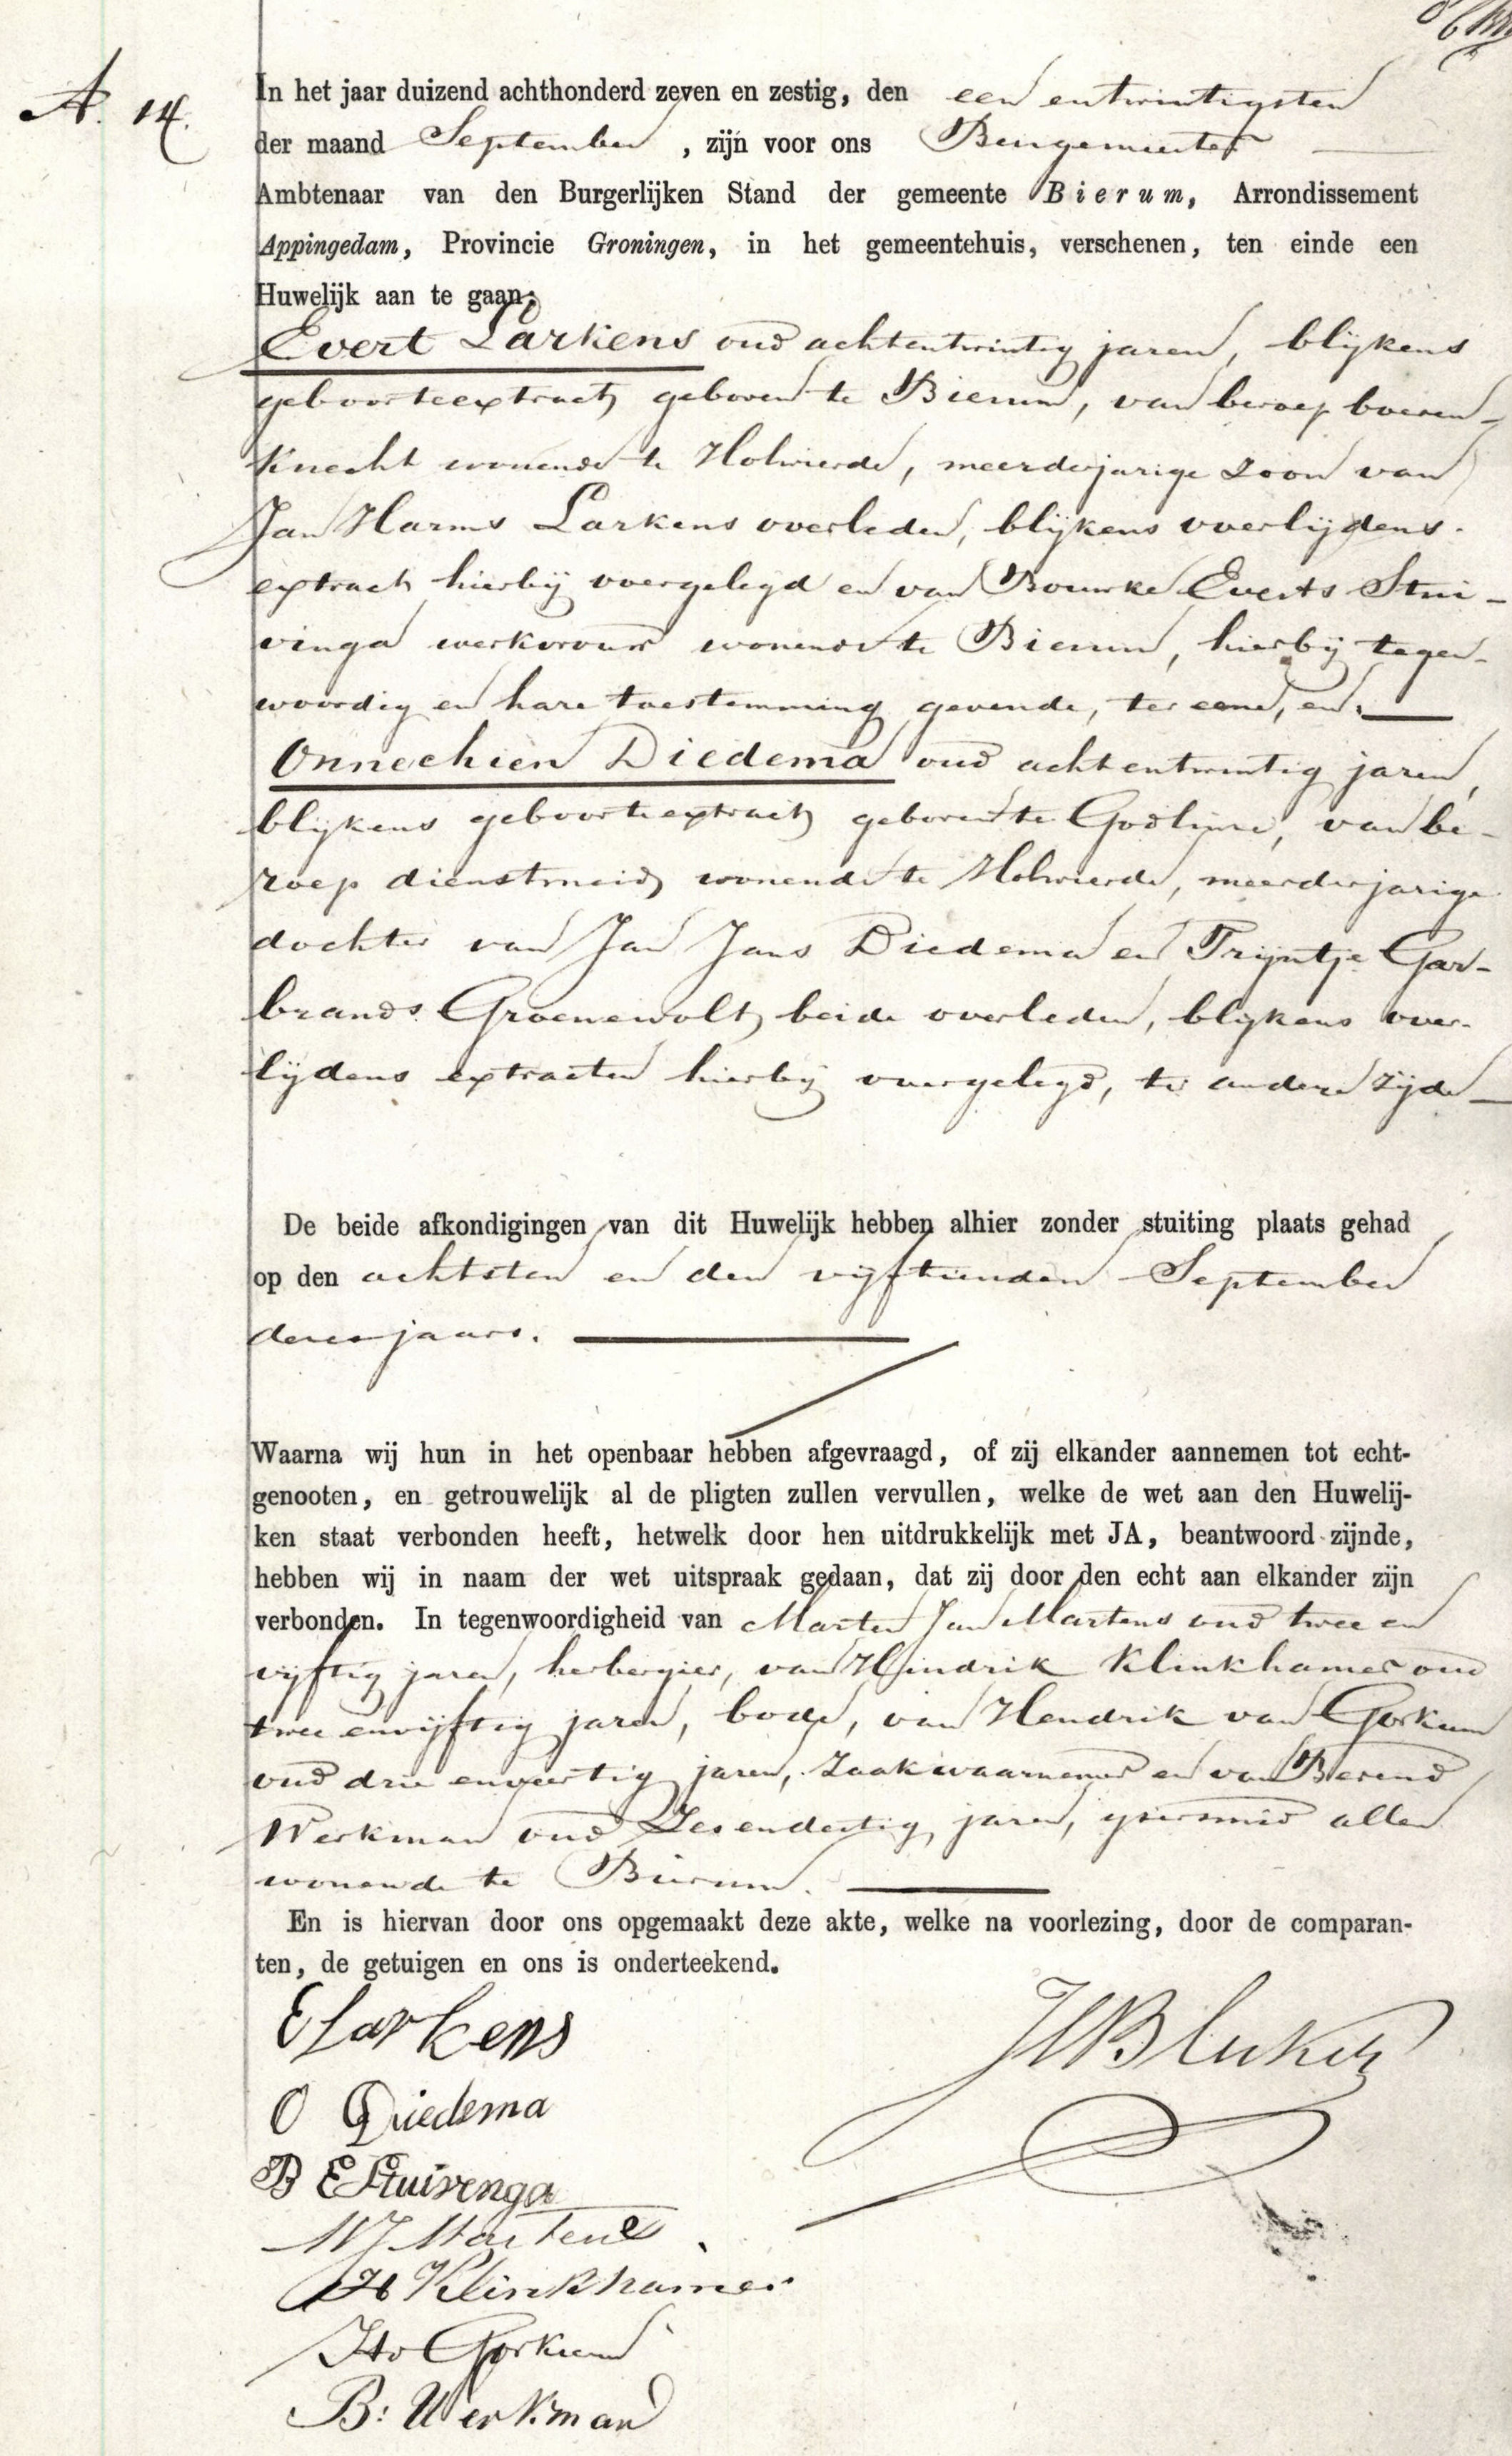 A. 14.
In het jaar duizend achthonderd zeven en zestig, den een entwintigsten
der maand September, zijn voor ons Burgemeester
Ambtenaar van den Burgerlijken Stand der gemeente Bierum, Arrondissement
Appingedam, Provincie Groningen, in het gemeentehuis, verschenen, ten einde een
Huwelijk aan te gaan;
Evert Larkens oud achtentwintig jaren, blijkens
geboorteextract geboren te Bierum, van beroep boeren-
knecht wonende te Holwierde, meerderjarige zoon van
Jan Harms Larkens overleden, blijkens overlijdens-
extract hierbij overgelegd en van Bouwke Everts Stui-
vinga werkvrouw wonende te Bierum, hierbij tegen-
woordig en hare toestemming gevende, ter eene, en
Onnechien Diedema oud achtentwintig jaren,
blijkens geboorteextract geboren te Godlinze, van be-
roep dienstmeid wonende te Holwierde, meerderjarige
dochter van Jan Jans Diedema en Trijntje Gar-
brands Groenewolt beide overleden, blijkens over-
lijdens extracten hierbij overgelegd, ter andere zijde
De beide afkondigingen van dit Huwelijk hebben alhier zonder stuiting plaats gehad
op den achtsten en den vijftienden September
dezes jaars.
Waarna wij hun in het openbaar hebben afgevraagd, of zij elkander aannemen tot echt-
genooten, en getrouwelijk al de pligten zullen vervullen, welke de wet aan den Huwelij-
ken staat verbonden heeft, hetwelk door hen uitdrukkelijk met JA, beantwoord zijnde,
hebben wij in naam der wet uitspraak gedaan, dat zij door den echt aan elkander zijn
verbonden. In tegenwoordigheid van Marten Jan Martens oud twee en
vijftig jaren, herbergier, van Hindrik Klinkhamer oud
twee envijftig jaren, bode, van Hendrik van Gorkum
oud drie enveertig jaren, zaakwaarnemer en van Berend
Werkman oud Zesendertig jaren, ijzersmid allen
wonende te Bierum.
En is hiervan door ons opgemaakt deze akte, welke na voorlezing, door de comparan-
ten, de getuigen en ons is onderteekend.
E Larkens
O Diedema
B E Stuivenga
MJ Martens
H Klinkhamer
Hv Gorkum
B: Werkman